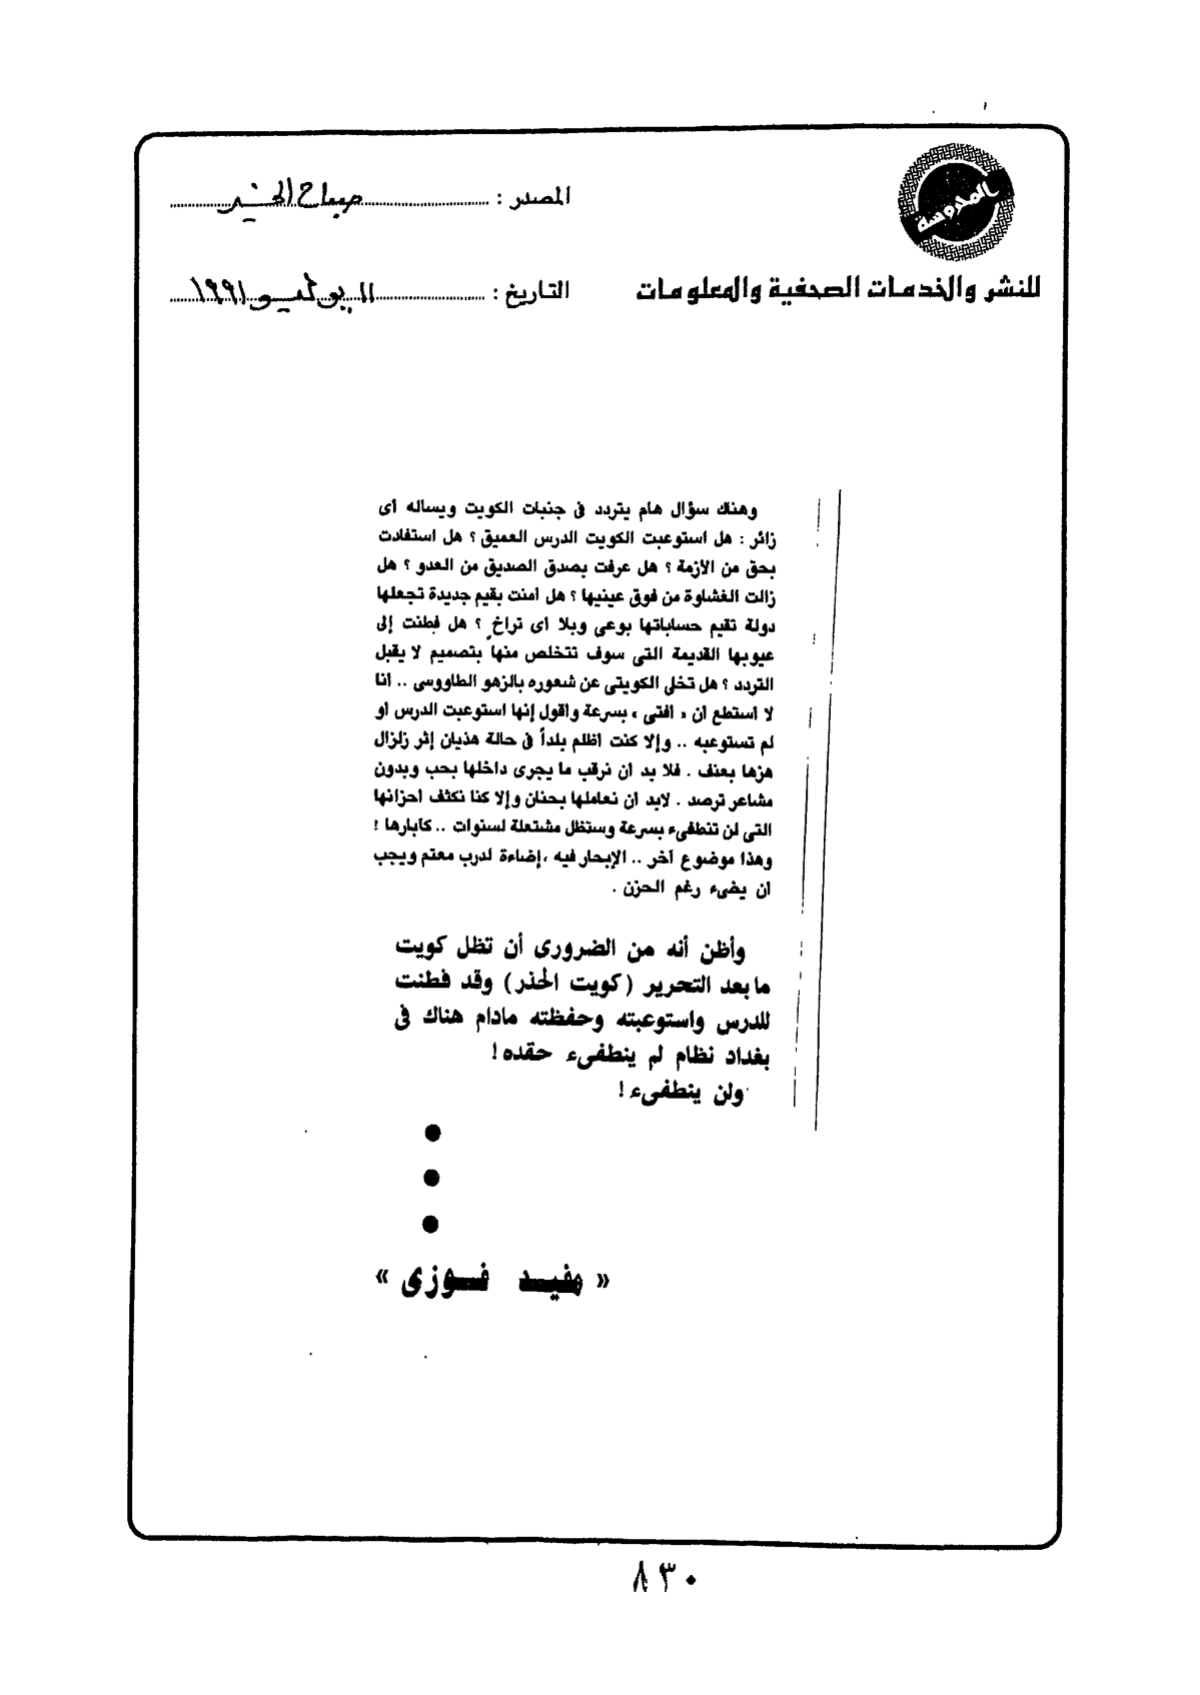 المحروسة
للنشر والخدمات الصحفية والمعلومات
المصدر : صباح الخير
التاريخ : ١١ يوليو ١٩٩١
وهناك سؤال هام يتردد فى جنبات الكويت ويساله اى
زائر : هل استوعبت الكويت الدرس العميق ؟ هل استفادت
بحق من الأزمة ؟ هل عرفت بصدق الصديق من العدو ؟ هل
زالت الغشاوة من فوق عينيها ؟ هل امنت بقيم جديدة تجعلها
دولة تقيم حساباتها بوعى وبلا اى تراخٍ ؟ هل فطنت إلى
عيوبها القديمة التى سوف تتخلص منها بتصميم لا يقبل
التردد ؟ هل تخلى الكويتى عن شعوره بالزهو الطاووسى .. انا
لا استطع ان « افتى » بسرعة واقول إنها استوعبت الدرس او
لم تستوعبه .. وإلا كنت اظلم بلداً فى حالة هذيان إثر زلزال
هزها بعنف . فلا بد ان نرقب ما يجرى داخلها بحب وبدون
مشاعر ترصد . لابد ان نعاملها بحنان وإلا كنا نكثف احزانها
التى لن تنطفىء بسرعة وستظل مشتعلة لسنوات .. كآبارها !
وهذا موضوع آخر .. الإبحار فيه ، إضاءة لدرب معتم ويجب
ان يضىء رغم الحزن .
وأظن أنه من الضرورى أن تظل كويت
ما بعد التحرير (كويت الحذر) وقد فطنت
للدرس واستوعبته وحفظته مادام هناك فى
بغداد نظام لم ينطفىء حقده !
ولن ينطفىء !
●
●
●
« مفيد فوزى »
٨٣٠